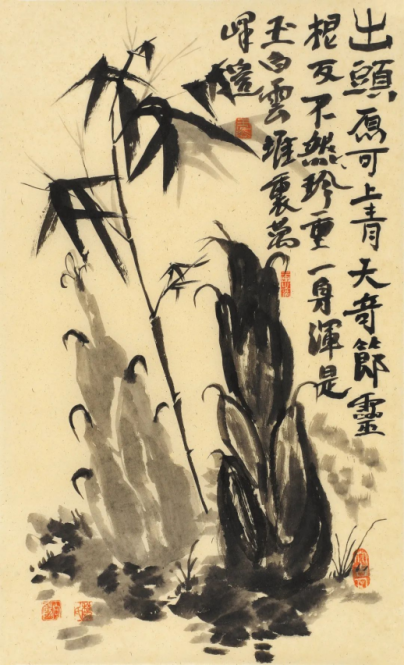 出頭原可上青天奇節靈
根反不然珍重一身渾是
玉白雲堆裏萬
峰邊